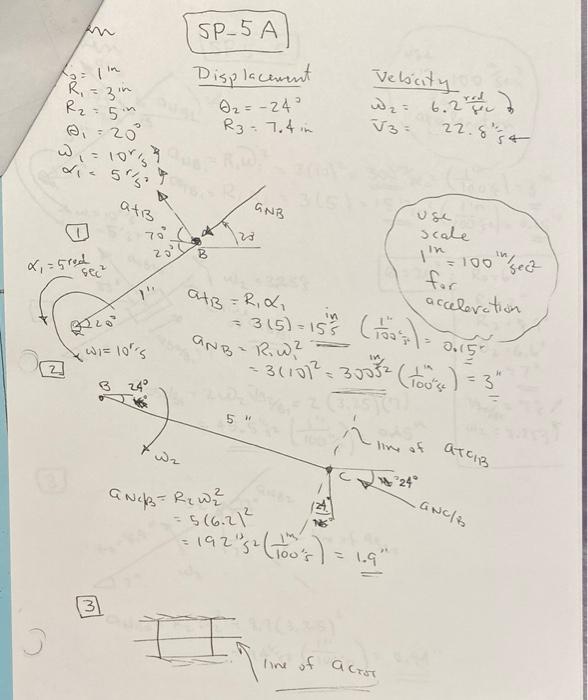 SP-5A
= 1 in
R1 = 3 in
R2 = 5 in
θ1 = 20°
ω1 = 10 r/s
α1 = 5 r/s²
Displacement
θ2 = -24°
R3 = 7.4 in
Velocity
ω2 = 6.2 rad/sec
V̄3 = 22.8 "/s ←
use
scale
1 in = 100 in/sec²
for
acceleration
1
atB
aNB
70°
20°
B
20
α1 = 5 rad/sec²
1"
20°
ω1 = 10 r/s
atB = R1α1
= 3(5) = 15 in/s (1"/100"/s²) = 0.15"
aNB = R1ω1²
= 3(10)² = 300 in/s² (1 in/100"/s²) = 3"
2
B 24°
5"
ω2
line of aTC/B
C 24°
24°
aNC/B
aNC/B = R2ω2²
= 5(6.2)²
= 192 "/s² (1 in/100"/s) = 1.9"
3
line of aCTOT